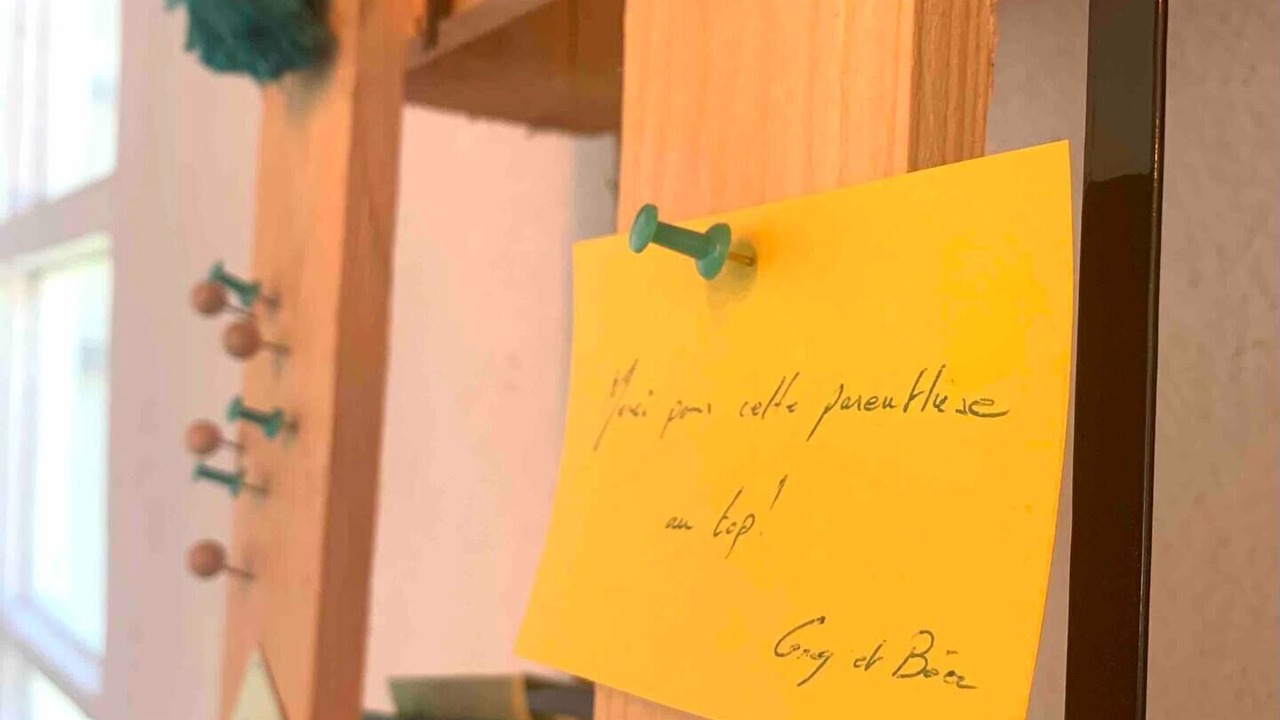 Merci pour cette parenthèse
au top!
Greg et Béa